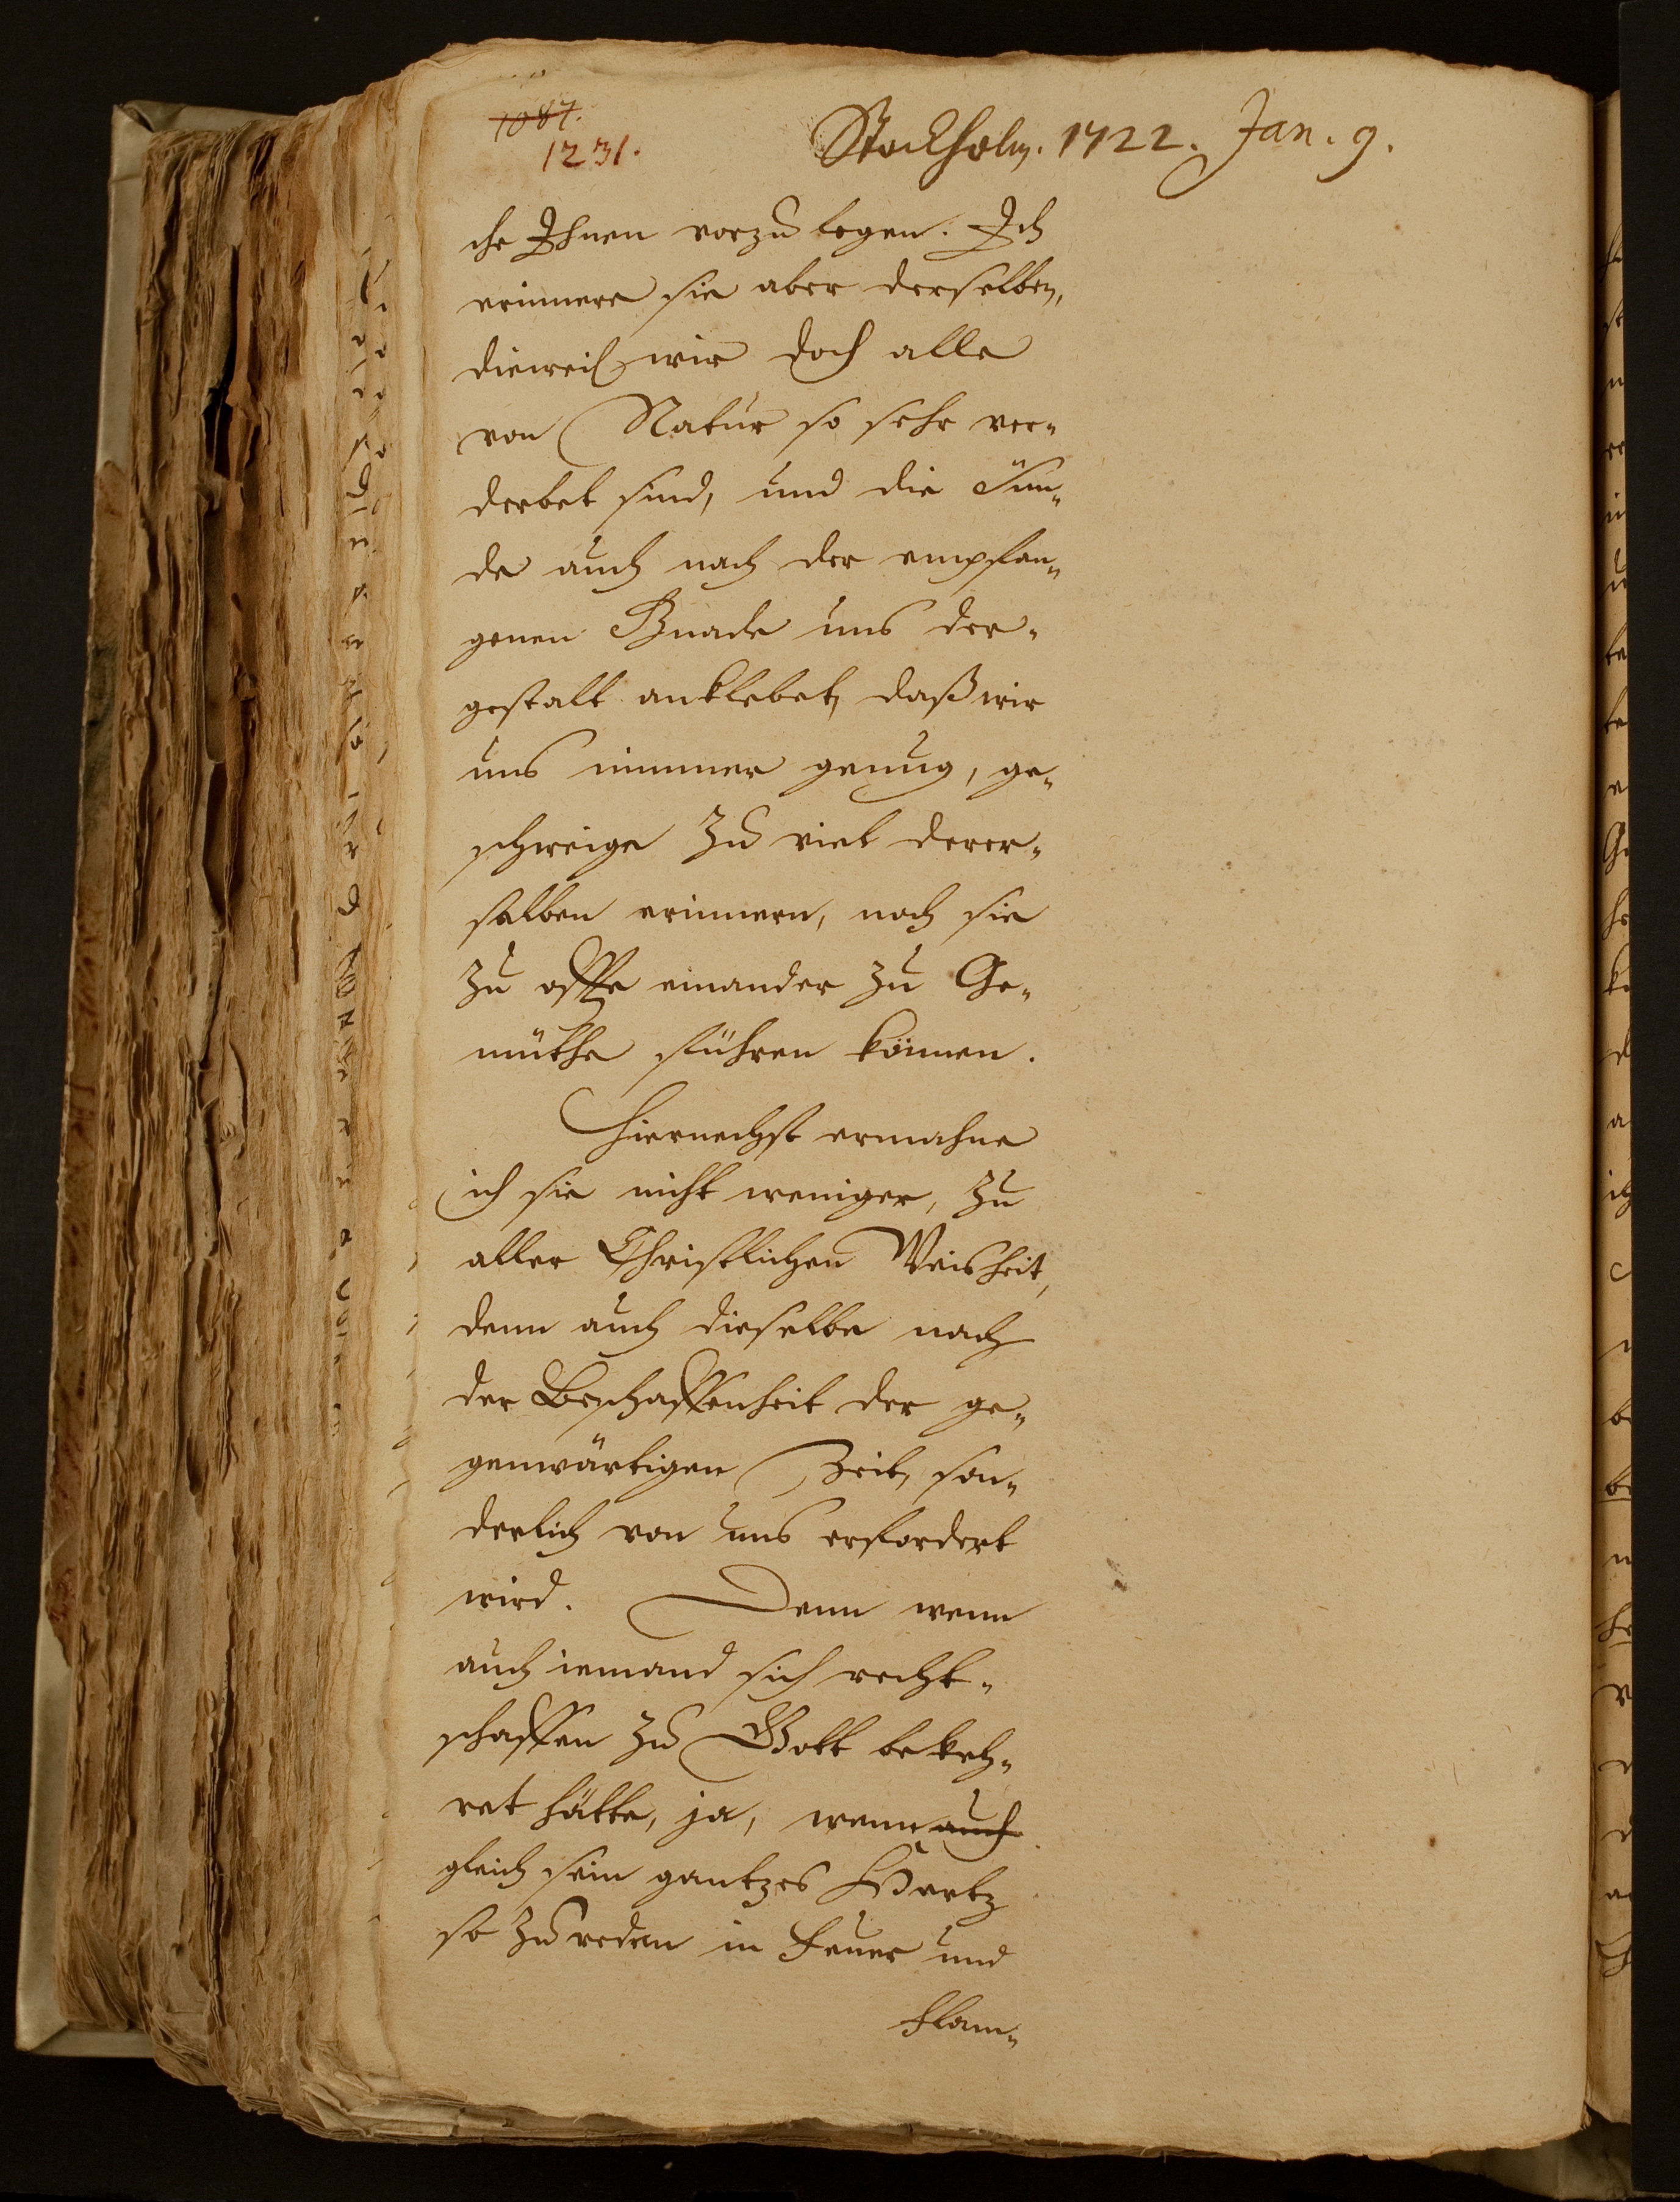 1087.
1231.
Stockholm. 1722. Jan. 9.
che Ihnen vorzu legen. Ich
erinnere sie aber derselben,
dieweil wir doch alle
von Natur so sehr ver„
derbet sind, und die Sün„
de auch nach der empfan„
genen Gnade uns der„
gestalt anklebet, daß wir
uns nimmer genug, ge„
schweige zu viel derer„
selben erinnern, noch sie
zu offte einander zu Ge„
müthe führen können.
Hiernechst ermahne
ich sie nicht weniger, zu
aller Christlichen Weisheit,
denn auch dieselbe nach
der Beschaffenheit der ge„
genwärtigen Zeit, son„
derlich von uns erfordert
wird. Denn wenn
auch iemand sich recht„
schaffen zu Gott bekeh„
ret hätte, ja, wenn auch
gleich sein gantzes Hertz
so zu reden in Feuer und
Flam„